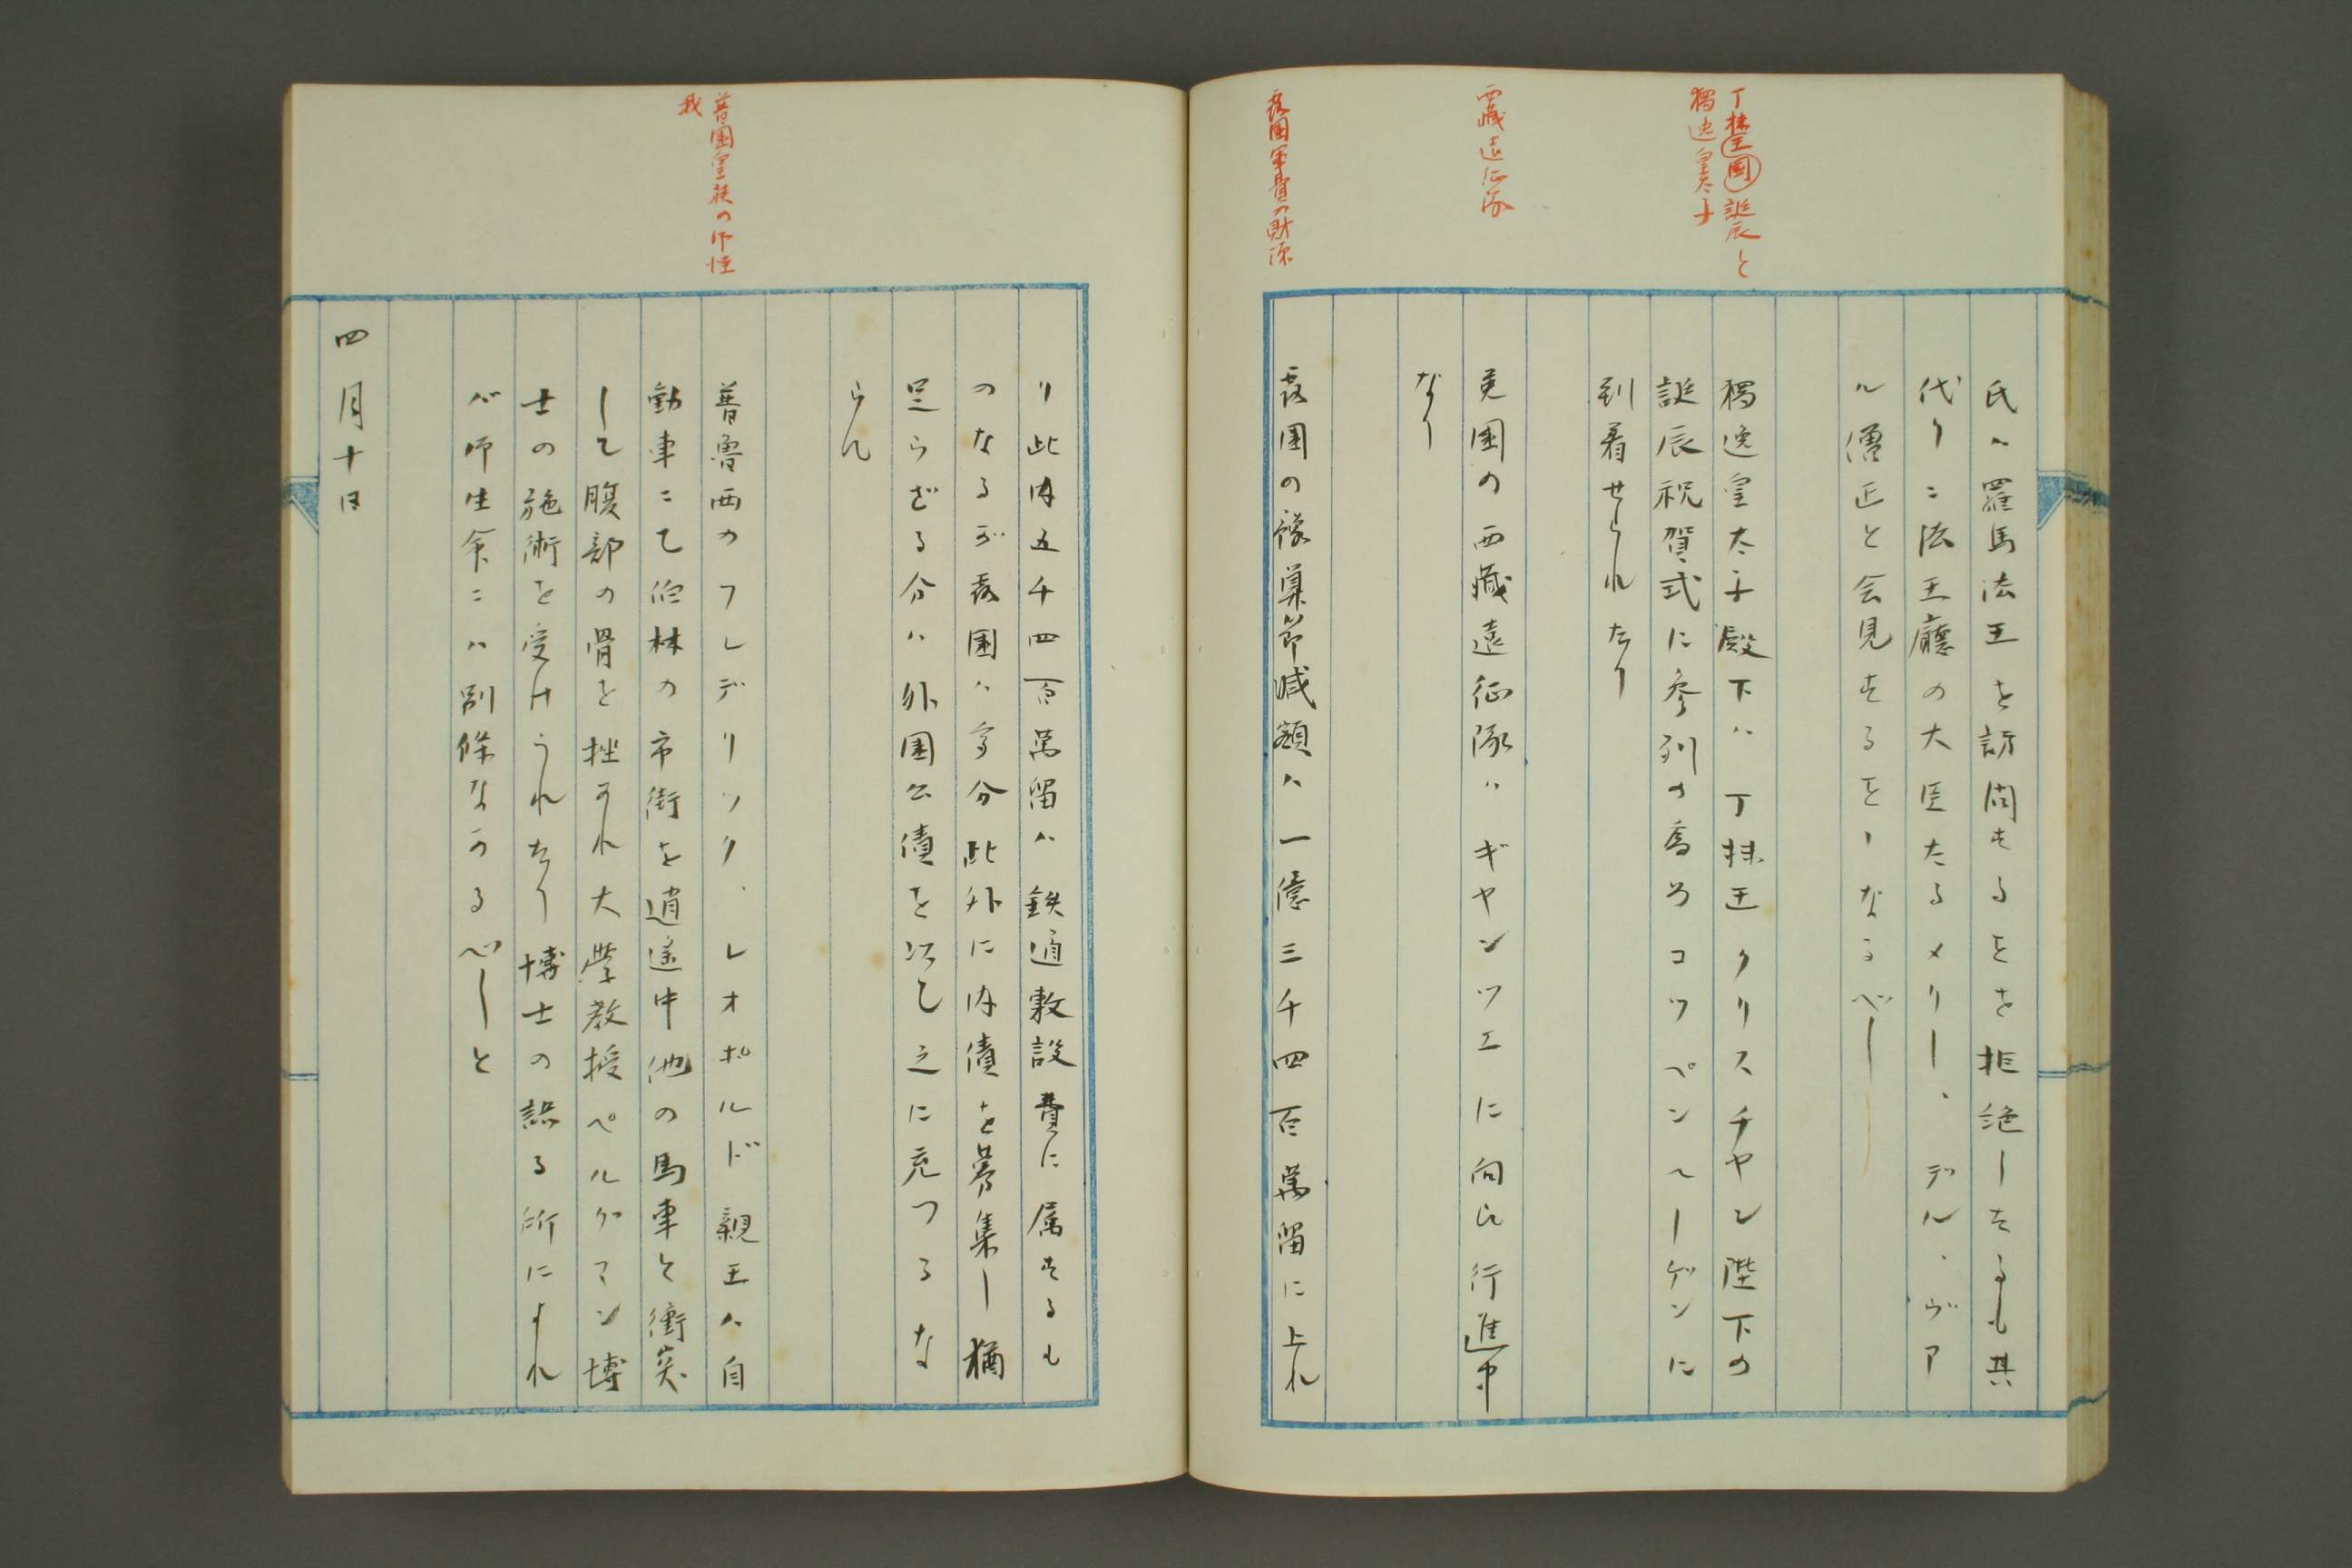 丁抹国王誕辰と
獨逸皇太子
西藏遠征隊
露国軍費の財源
氏ハ羅馬法王を訪問するをを拒絶したるも其
代りニ法王廳の大臣たるメリー、デル、ヴァ
ル僧正と会見するをヽなるべし
獨逸皇太子殿下ハ丁抹王クリスチヤン陛下の
誕辰祝賀式に参列の為めコツペンヘーゲンに
到着せられたり
英国の西藏遠征隊ハギヤンツエに向ひ行進中
なり
露国の豫算節減額ハ一億三千四百萬留に上れ
普国皇族の御怪
我
り此内五千四百萬留ハ鉄道敷設費に属するも
のなるが露国ハ多分此外に内債を募集し猶
足らざる分ハ外国公債を以て之に充つるな
らん
普魯西のフレデリツク、レオポルド親王ハ自
動車にて伯林の市街を逍遥中他の馬車と衝突
して腹部の骨を挫かれ大学教授ベルグマン博
士の施術を受けられたり博士の語る所によれ
バ御生命ニハ別條なかるべしと
四月十日